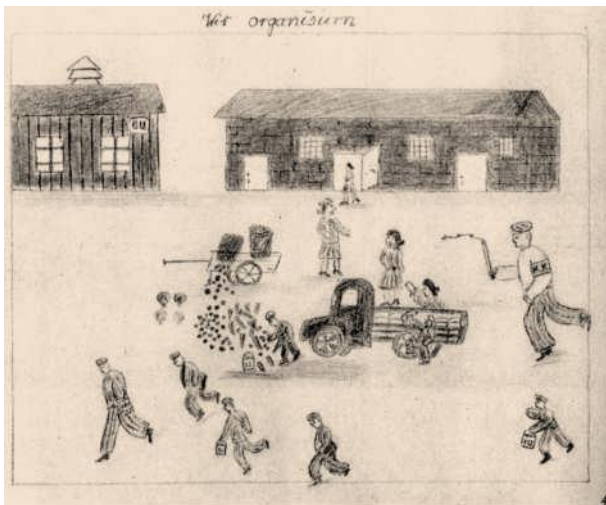 Wir organisiern